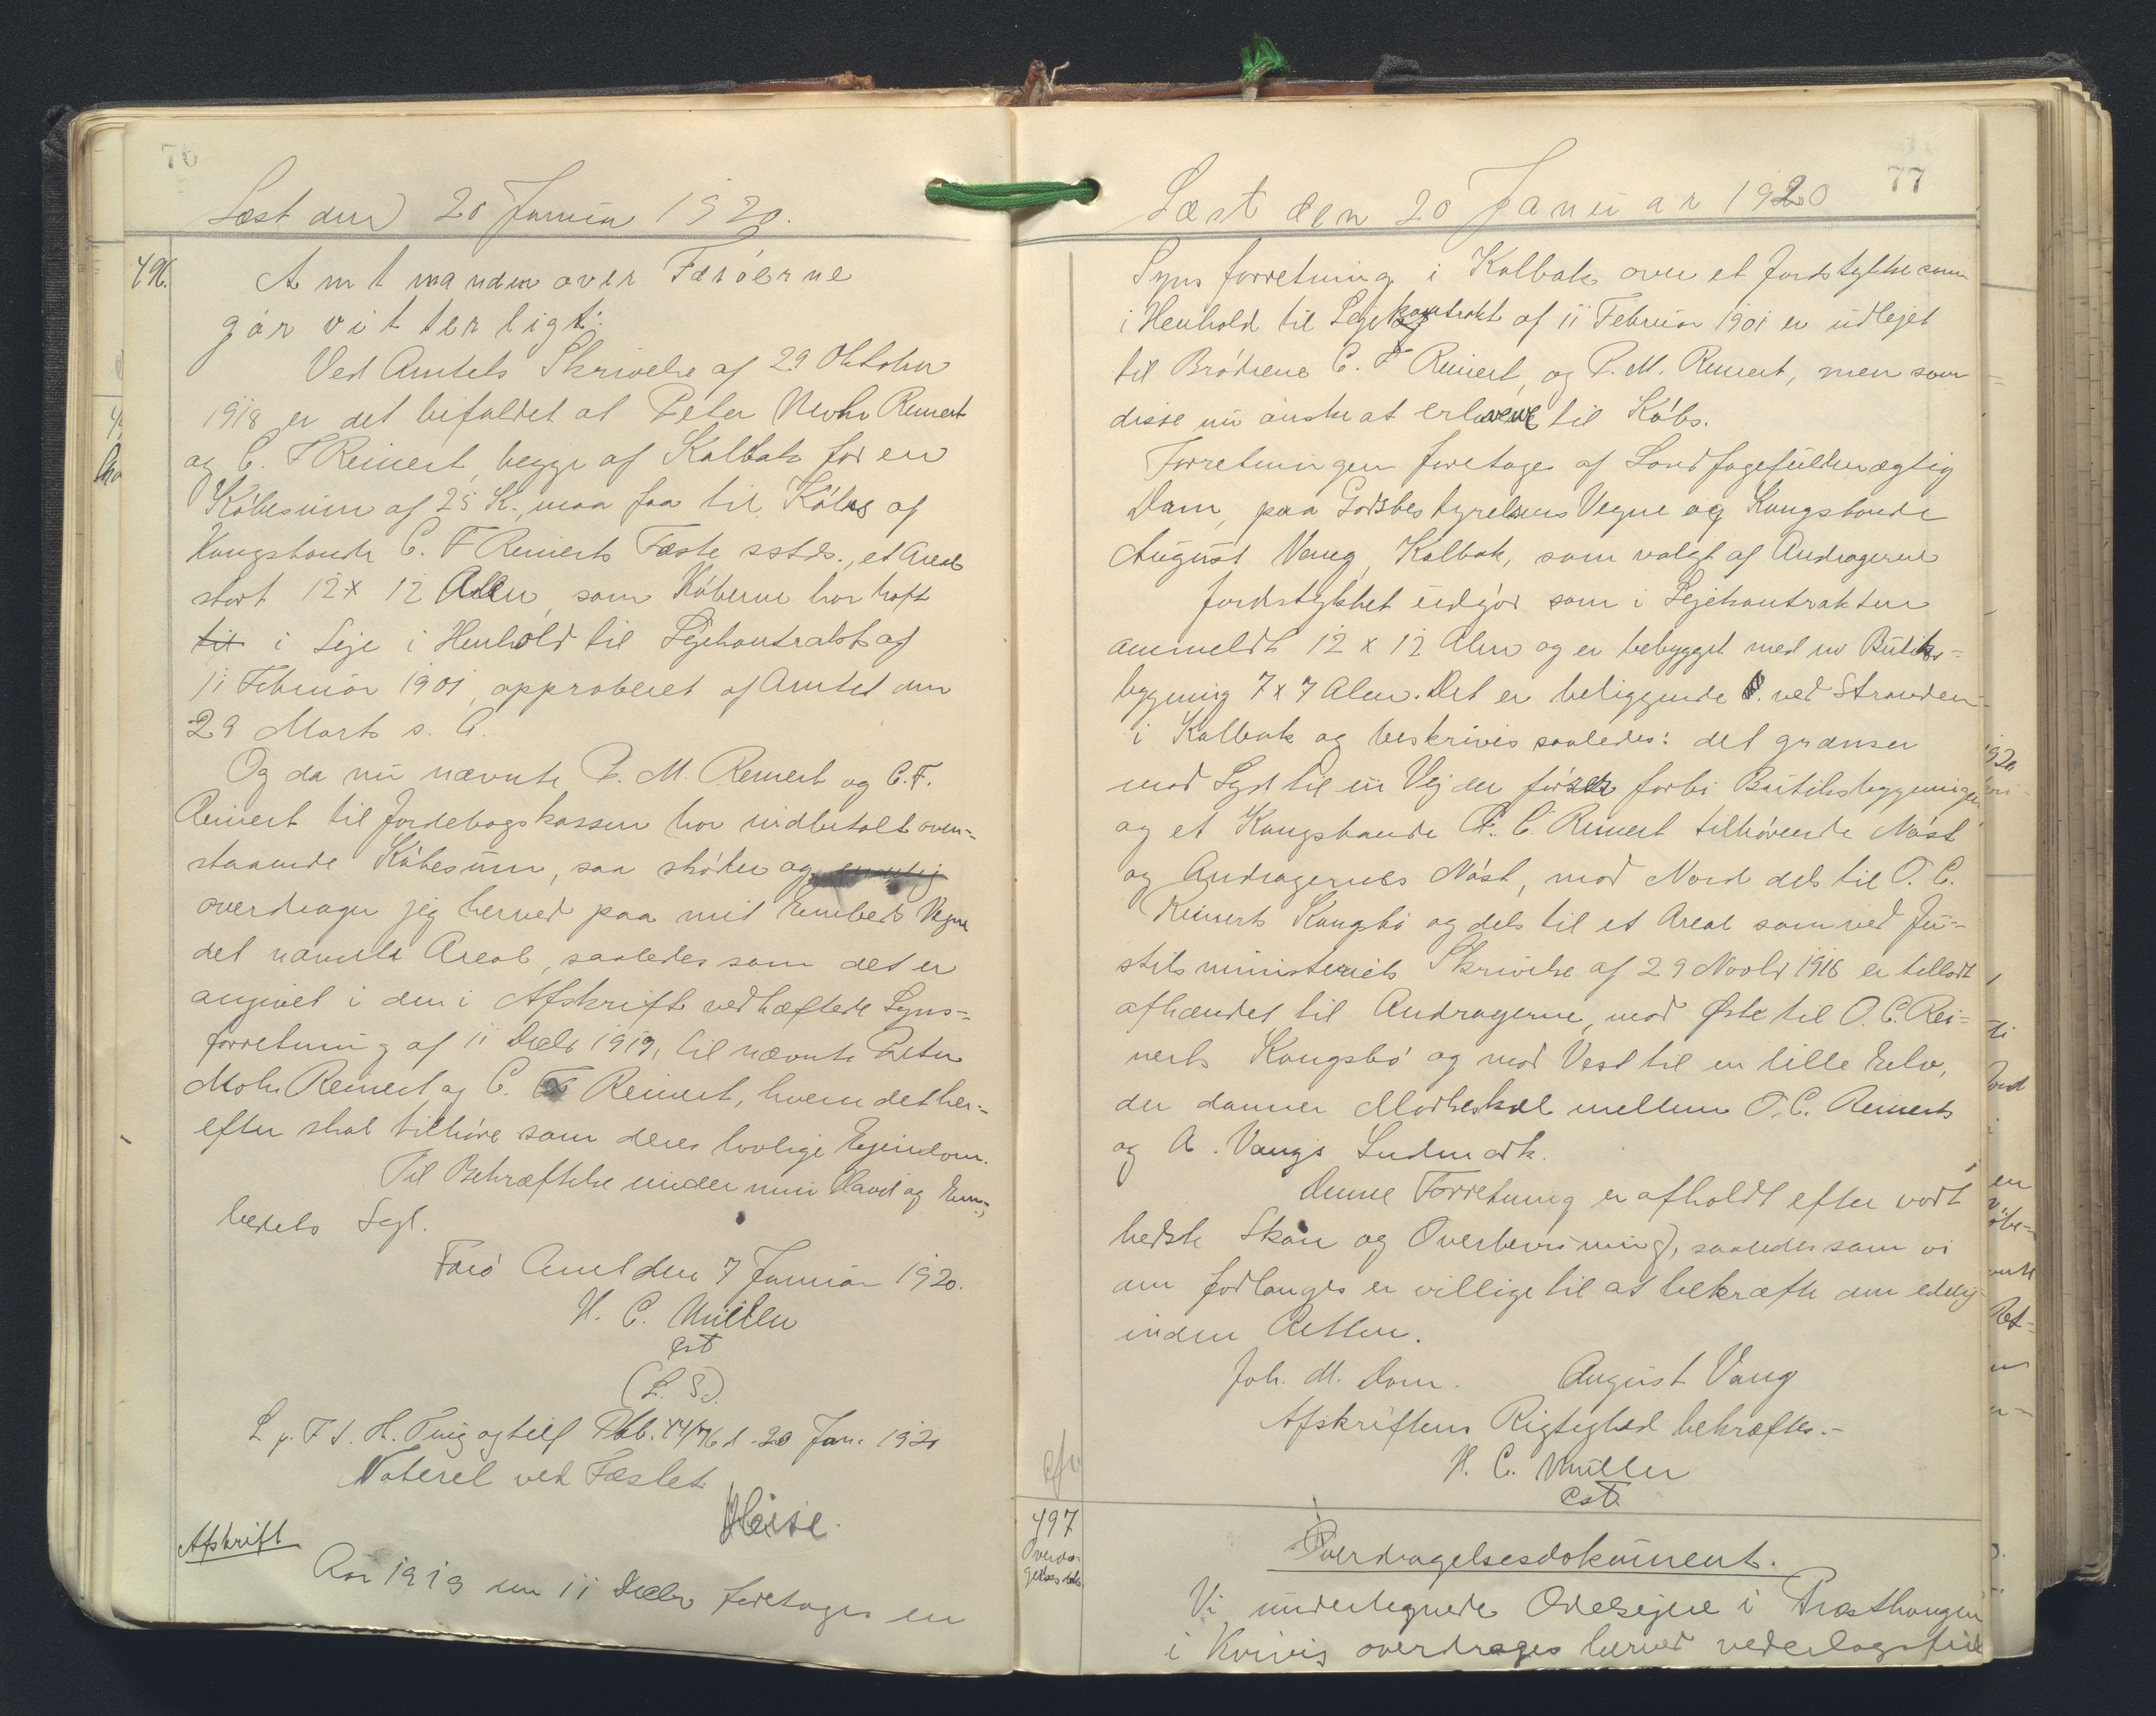 76
Læst den 20 Januar 1920.
496.
Amtmanden over Færöerne
gör vitterligt:
Ved Amtets Skrivelse af 29 Oktober
1918 er det bifaldet at Peter Mohr Reinert
og C. F Reinert, begge af Kalbak for en
Köbesum af 25 Kr., maa faa til Köbs af
Kongsbonde C. F Reinerts Fæste sstds., et Areal
stort 12 x 12 Alen, som Köberne har haft
til i Leje i Henhold til Lejekontrakt af
11 Februar 1901, approberet af Amtet den
29 Marts s. A.
Og da nu nævnte P. M. Reinert og C. F.
Reinert til Jordebogskassen har indbetalt oven-
staaende Köbesum, saa sköder og
overdrager jeg herved paa mit Embeds Vegne
det nævnte Areal, saaledes som det er
angivet i den i Afskrift vedhæftede Syns-
forretning af 11 Decbr 1919, til nævnte Peter
Mohr Reinert og C. F Reinert, hvem det her-
efter skal tilhöre som deres lovlige Ejendom.
Til Bekræftelse under min Haand og Em-
bedets Segl.
Färö Amt den 7 Januar 1920.
H. C. Müller
cst
(L. S.)
L. p. F. S. H. Ting og till Pbb. 44/76 d. 20 Jan. 1920
Noteret ved Fæstet.
Heise.
Afskrift
Aar 1919 den 11 Decbr foretoges en
77
Læst den 20 Januar 1920
Syns forretning i Kalbak over et Jordstykke som
i Henhold til Lejekontrakt af 11 Februar 1901 er udlejet
til Brödrene C. F Reinert, og P. M. Reinert, men som
disse nu önsker at erhverve til Köbs.
Forretningen foretages af Landfogefuldmægtig
Dam, paa Godsbestyrelsens Vegne og Kongsbonde
August Vang, Kalbak, som valgt af Andragerne
Jordstykket udgör som i Lejekontrakten
anmeldt 12 x 12 Alen og er bebygget med en Butiks-
bygning 7 x 7 Alen. Det er beliggende ved Stranden
i Kalbak og beskrives saaledes: det grænser
mod Syd til en Vej der förer forbi Butiksbygningen
og et Kongsbonde O. C. Reinert tilhörende Nöst
og Andragernes Nöst, mod Nord dels til O. C.
Reinerts Kongsbö og dels til et Areal som ved Ju-
stitsministeriets Skrivelse af 29 Novbr 1916 er tilladt
afhændet til Andragerne, mod Øst til O. C. Rei-
nerts Kongsbö og mod Vest til en lille Elv,
der danner Markeskel mellem O. C. Reinerts
og A. Vangs Indmark.
Denne Forretning er afholdt efter vort
bedste Skön og Overbevisning, saaledes som vi
om forlanges er villige til at bekræfte den edelig
inden Retten.
Joh. M. Dam. August Vang
Afskriftens Rigtighed bekræftes.-
H. C. Müller
cst.
cfr
497
Overdra-
gelses dok.
Overdragelsesdokument.
Vi undertegnede Odelsejere i Præsthaugen
i Kvivig overdrages herved vederlagsfrit